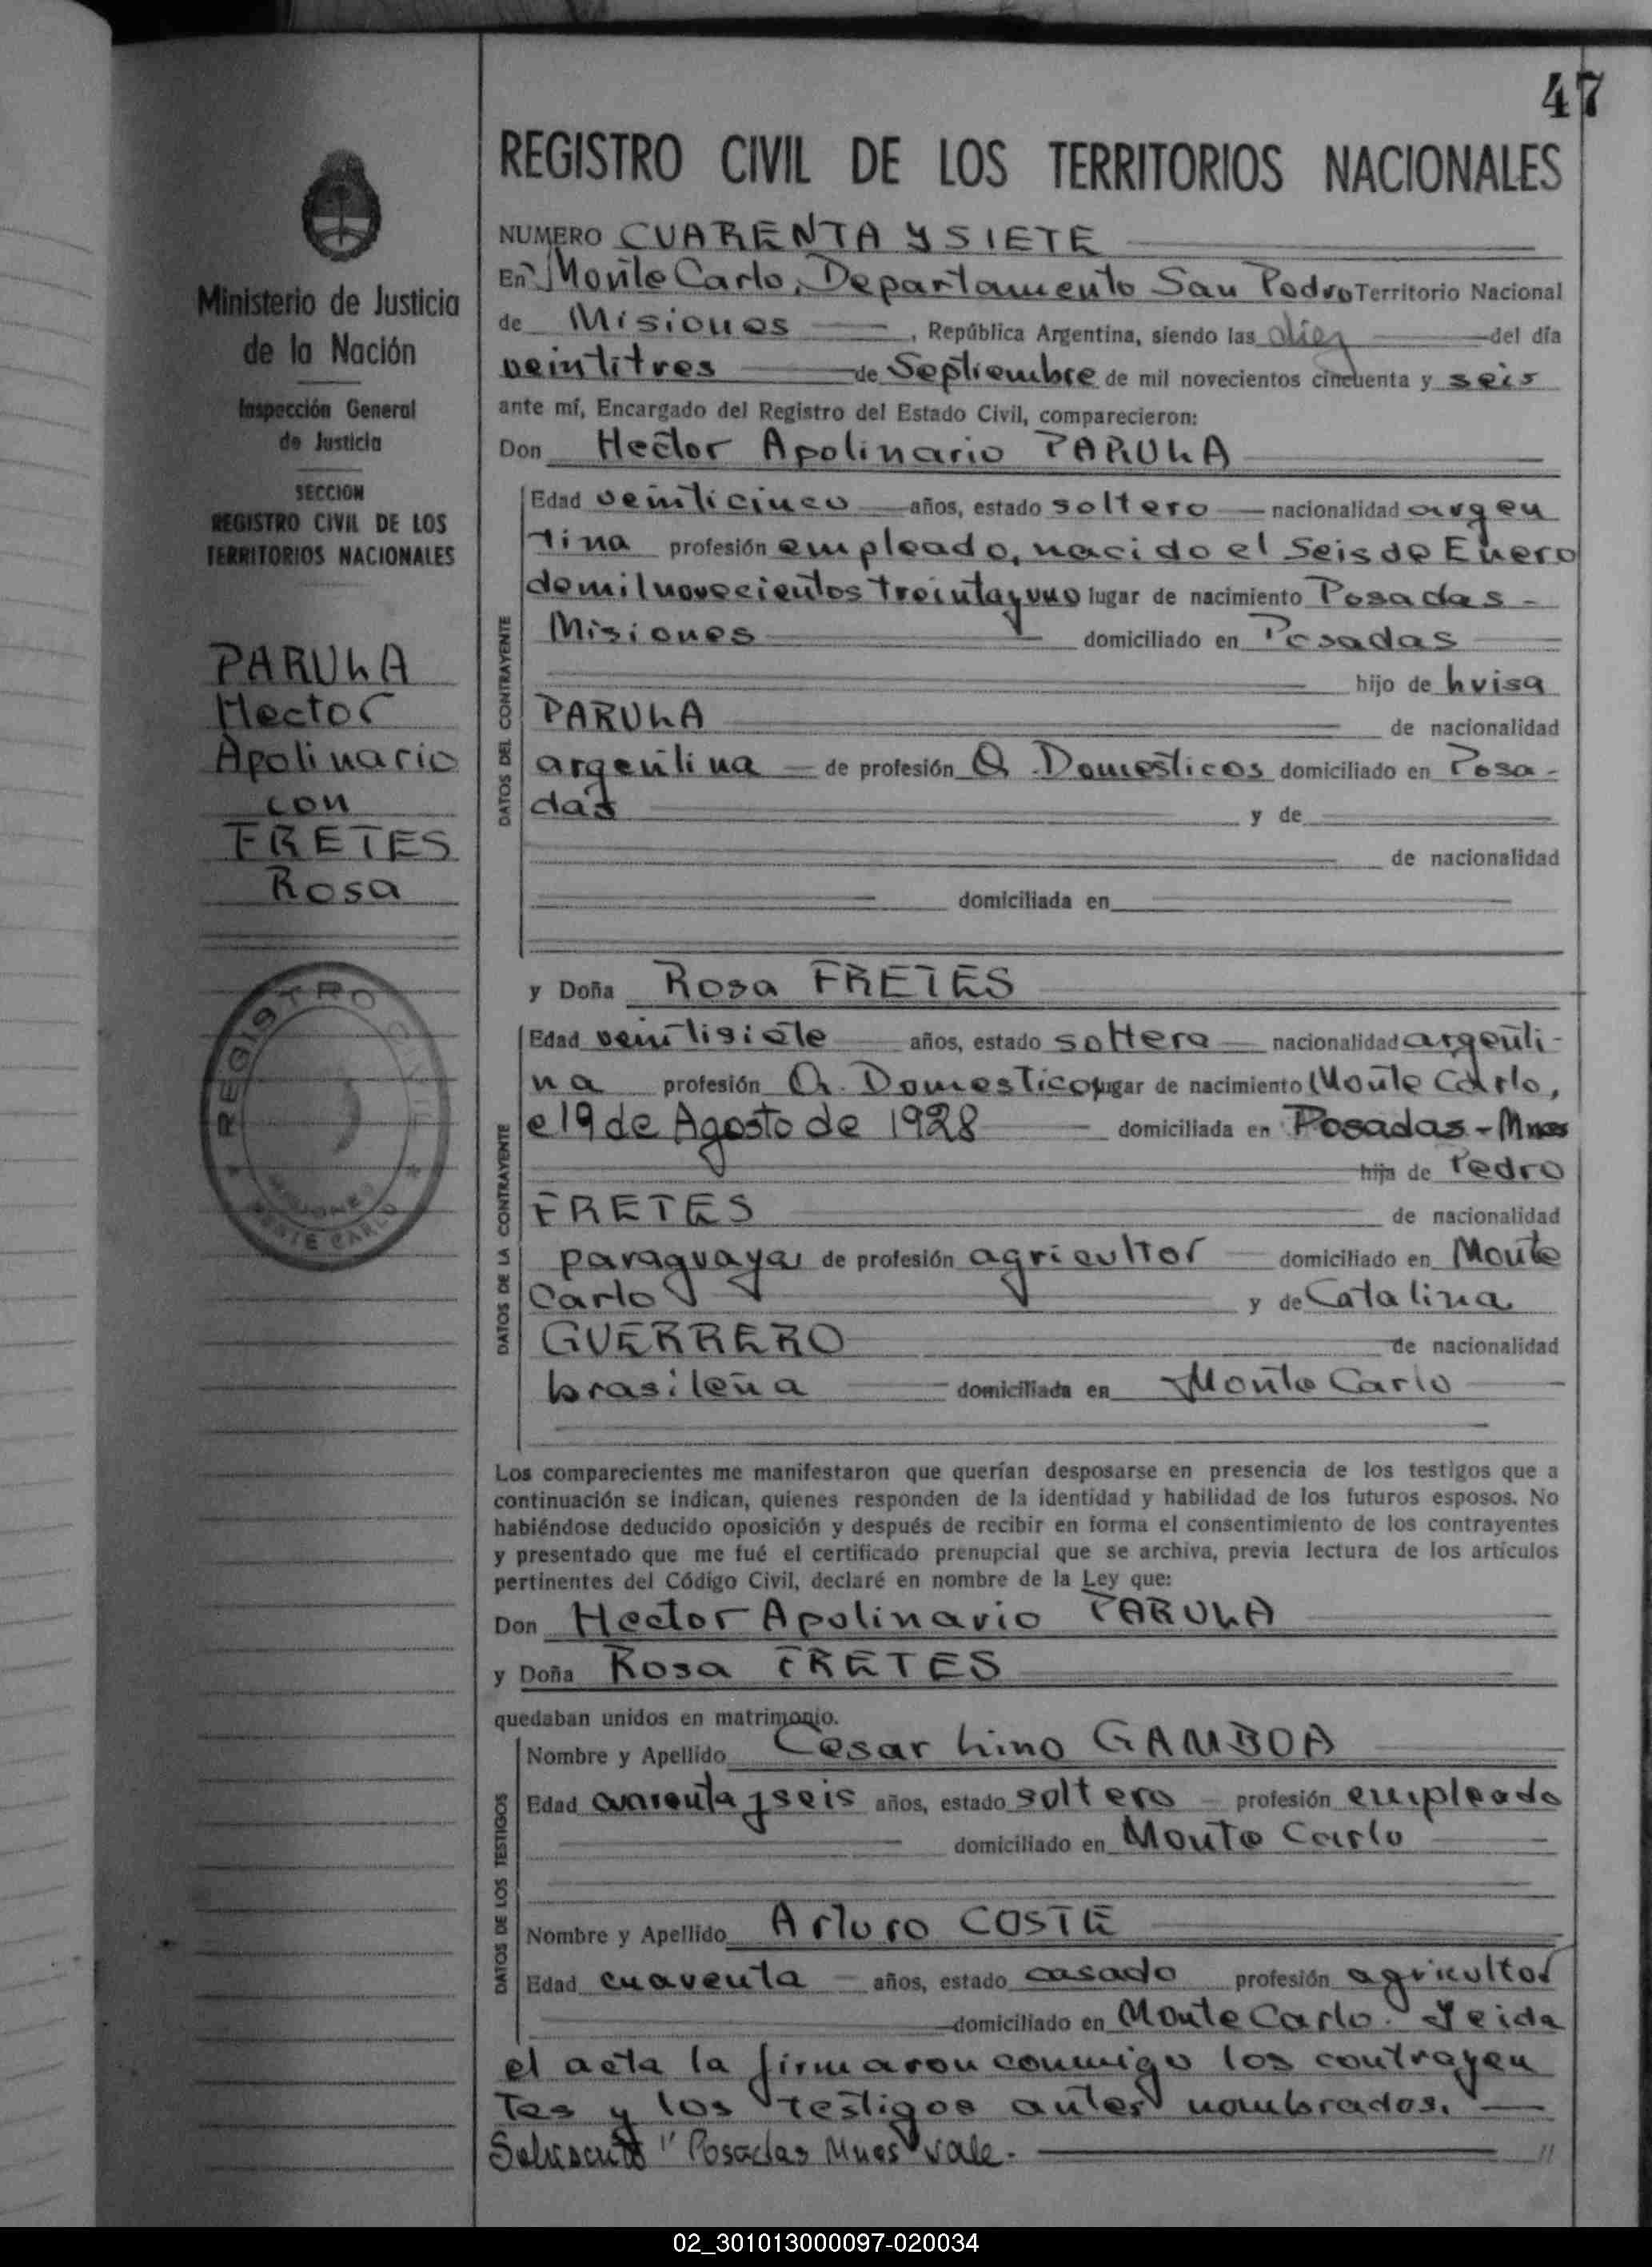 47
REGISTRO CIVIL DE LOS TERRITORIOS NACIONALES
Ministerio de Justicia
de la Nación
Inspección General
de Justicia
SECCION
REGISTRO CIVIL DE LOS
TERRITORIOS NACIONALES
PARULA
Hector
Apolinario
con
FRETES
Rosa
REGISTRO CIVIL
MISIONES
MONTE CARLO
NUMERO CUARENTA Y SIETE
En Monte Carlo, Departamento San Pedro Territorio Nacional
de Misiones, República Argentina, siendo las diez del día
veintitres de Septiembre de mil novecientos cincuenta y seis
ante mí, Encargado del Registro del Estado Civil, comparecieron:
Don Hector Apolinario PARULA
DATOS DEL CONTRAYENTE
Edad veinticinco años, estado soltero nacionalidad argen
tina profesión empleado, nacido el seis de Enero
de mil novecientos treinta y uno lugar de nacimiento Posadas -
Misiones domiciliado en Posadas
hijo de Luisa
PARULA de nacionalidad
argentina de profesión Q. Domesticos domiciliado en Posa-
das y de
de nacionalidad
domiciliada en
y Doña Rosa FRETES
DATOS DE LA CONTRAYENTE
Edad veintisiete años, estado soltera nacionalidad argenti-
na profesión Q. Domesticos lugar de nacimiento Monte Carlo,
el 9 de Agosto de 1928 domiciliada en Posadas - Mnes
hija de Pedro
FRETES de nacionalidad
paraguaya de profesión agricultor domiciliado en Monte
Carlo y de Catalina
GUERRERO de nacionalidad
brasileña domiciliada en Monte Carlo
Los comparecientes me manifestaron que querían desposarse en presencia de los testigos que a
continuación se indican, quienes responden de la identidad y habilidad de los futuros esposos. No
habiéndose deducido oposición y después de recibir en forma el consentimiento de los contrayentes
y presentado que me fué el certificado prenupcial que se archiva, previa lectura de los artículos
pertinentes del Código Civil, declaré en nombre de la Ley que:
Don Hector Apolinario PARULA
y Doña Rosa FRETES
quedaban unidos en matrimonio.
DATOS DE LOS TESTIGOS
Nombre y Apellido Cesar Lino GAMBOA
Edad cuarenta y seis años, estado soltero profesión empleado
domiciliado en Monte Carlo
Nombre y Apellido Arturo COSTE
Edad cuarenta años, estado casado profesión agricultor
domiciliado en Monte Carlo. Leida
el acta la firmaron conmigo los contrayen
tes y los testigos antes nombrados.
"Posadas Mnes" vale.-
02_301013000097-020034